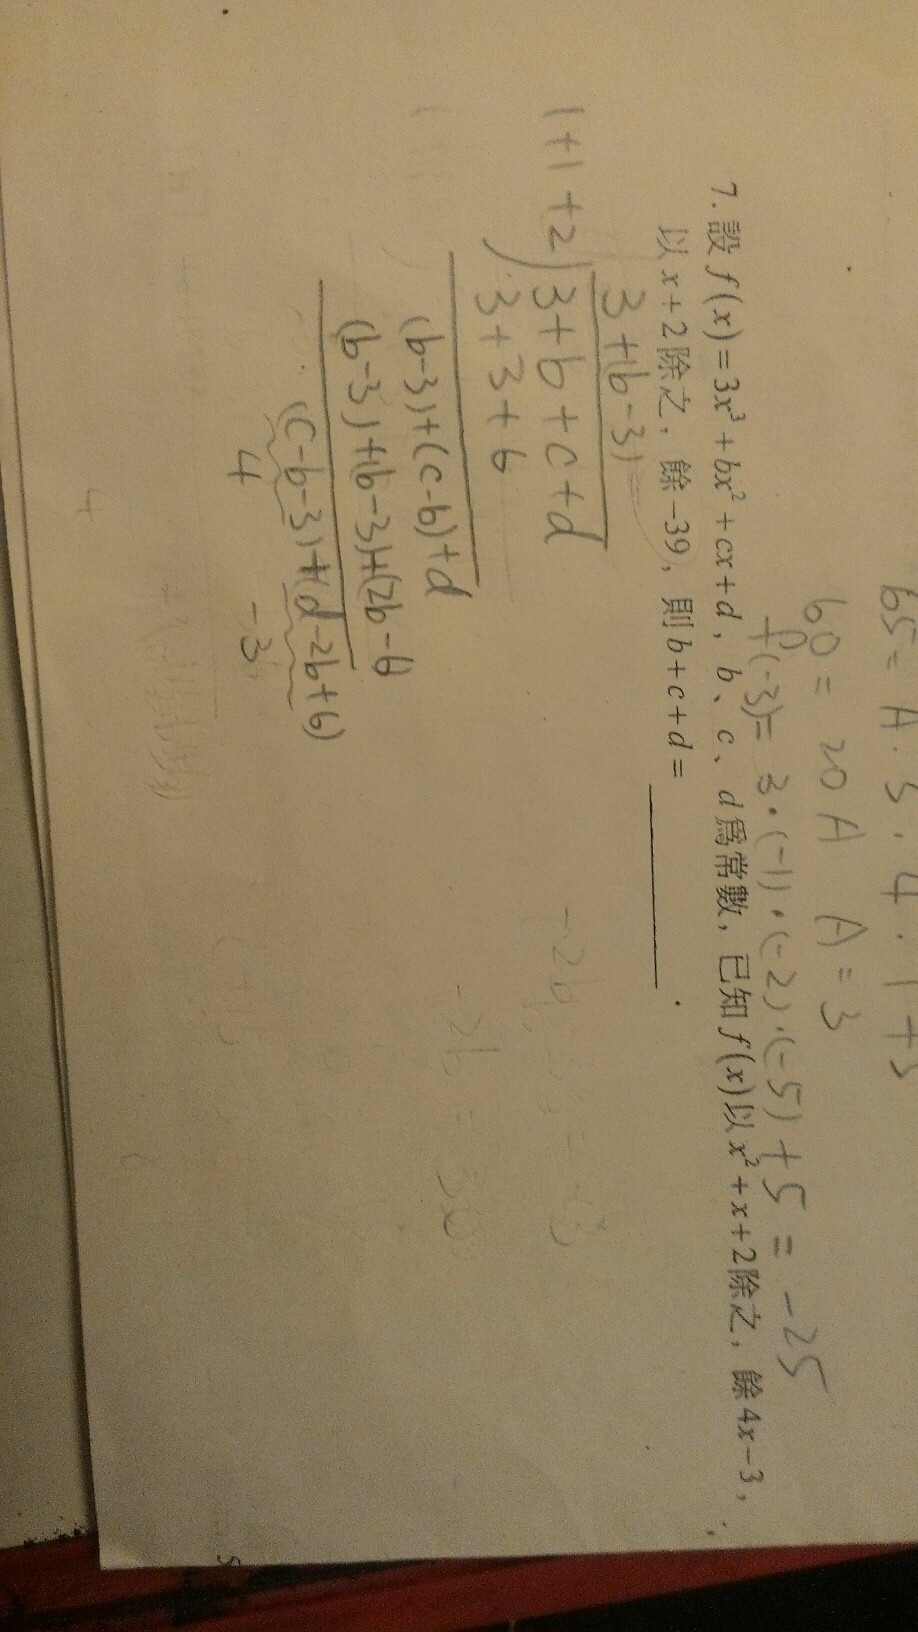 65 = A · 3 · 4 · 1 + 5
60 = 20A A = 3
f(-3) = 3 · (-1) · (-2) · (-5) + 5 = -25
7. 設 f(x) = 3x³ + bx² + cx + d、b、c、d 為常數，已知 f(x) 以 x² + x + 2 除之，餘 4x − 3，
以 x + 2 除之，餘 −39，則 b + c + d =
3 + (b-3)
1 + 1 + 2 ) 3 + b + c + d
3 + 3 + 6
(b-3) + (c-6) + d
(b-3) + (b-3) + (2b-6
(c-b-3) + (d-2b+6)
4 -3